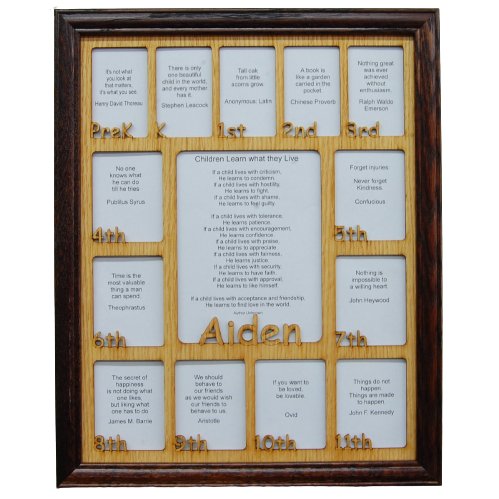 It's not what
you look at
that matters,
it's what you see.
Henry David Thoreau
PreK
There is only
one beautiful
child in the world,
and every mother
has it.
Stephen Leacock
K
Tall oak
from little
acorns grow.
Anonymous: Latin
1st
A book is
like a garden
carried in the
pocket.
Chinese Proverb
2nd
Nothing great
was ever
achieved
without
enthusiasm.
Ralph Walde
Emerson
3rd
No one
knows what
he can do
till he fries
Publilius Syrus
4th
Children Learn what they Live
If a child lives with criticism,
He learns to condemn.
If a child lives with hostility,
He learns to fight.
If a child lives with shame,
He learns to feel guilty.
If a child lives with tolerance,
He learns patience.
If a child lives with encouragement,
He learns confidence.
If a child lives with praise,
He learns to appreciate
If a child lives with fairness,
He learns justice.
If a child lives with security,
He learns to have faith.
If a child lives with approval,
He learns to like himself.
If a child lives with acceptance and friendship,
He learns to find love in the world.
Author Unknown
Aiden
Forget injuries:
Never forget
Kindness.
Confucious
5th
Time is the
most valuable
thing a man
can spend.
Theophrastus
6th
Nothing is
impossible to
a willing heart.
John Heywood
7th
The secret of
happiness
is not doing
what one
likes,
but liking what
one has to do
James M. Barrie
8th
We should
behave to
our friends
as we would
wish our
friends to
behave to us.
Aristotle
9th
If you want to
be loved,
be lovable.
Ovid
10th
Things do not
happen.
Things are made
to happen.
John F. Kennedy
11th